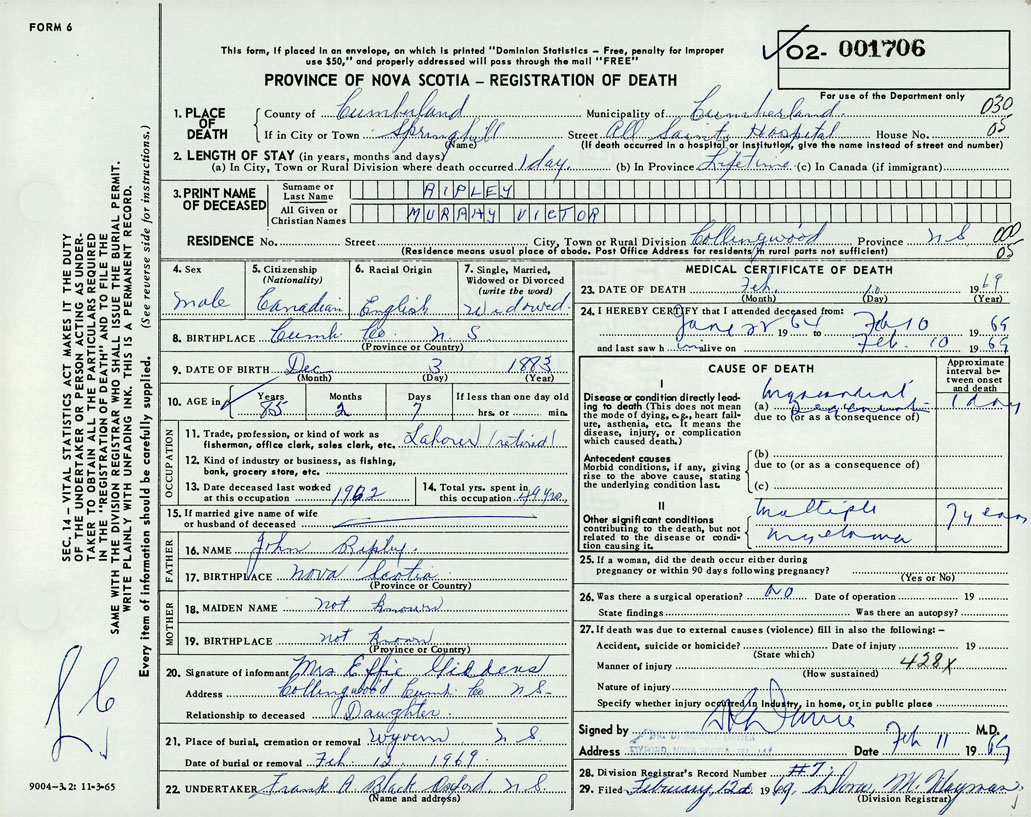 FORM 6
This form, if placed in an envelope, on which is printed "Dominion Statistics – Free, penalty for improper
use $50," and properly addressed will pass through the mail "FREE"
PROVINCE OF NOVA SCOTIA – REGISTRATION OF DEATH
02- 001706
For use of the Department only
030
05
1. PLACE OF DEATH
County of Cumberland Municipality of Cumberland
If in City or Town Springhill Street All Saints Hospital House No.
(Name) (If death occurred in a hospital or institution, give the name instead of street and number)
2. LENGTH OF STAY (in years, months and days)
(a) In City, Town or Rural Division where death occurred 1 day. (b) In Province Lifetime (c) In Canada (if immigrant)
3. PRINT NAME OF DECEASED
Surname or Last Name RIPLEY
All Given or Christian Names MURPHY VICTOR
RESIDENCE No. Street City, Town or Rural Division Collingwood Province N S
000
05
(Residence means usual place of abode. Post Office Address for residents in rural parts not sufficient)
4. Sex
male
5. Citizenship
(Nationality)
Canadian
6. Racial Origin
English
7. Single, Married,
Widowed or Divorced
(write the word)
Widowed
8. BIRTHPLACE Cumb. Co. N. S
(Province or Country)
9. DATE OF BIRTH Dec 3 1883
(Month) (Day) (Year)
10. AGE in Years Months Days If less than one day old
85 2 7 hrs. or min.
OCCUPATION
11. Trade, profession, or kind of work as
fisherman, office clerk, sales clerk, etc. Labourer (retired)
12. Kind of industry or business, as fishing,
bank, grocery store, etc.
13. Date deceased last worked
at this occupation 1962
14. Total yrs. spent in
this occupation 49 yrs.
15. If married give name of wife
or husband of deceased
FATHER
16. NAME John Ripley.
17. BIRTHPLACE Nova Scotia
(Province or Country)
MOTHER
18. MAIDEN NAME not known
19. BIRTHPLACE not known
(Province or Country)
20. Signature of informant Mrs Effie Giddens
Address Collingwood Cumb. Co N S.
Relationship to deceased Daughter.
21. Place of burial, cremation or removal Wyvern N S.
Date of burial or removal Feb. 12 1969
22. UNDERTAKER Frank A Black Oxford, N. S.
(Name and address)
MEDICAL CERTIFICATE OF DEATH
23. DATE OF DEATH Feb. 10 1969
(Month) (Day) (Year)
24. I HEREBY CERTIFY that I attended deceased from:
June 22 1964 to Feb 10 1969
and last saw him alive on Feb. 10 1969
CAUSE OF DEATH
Approximate
interval be-
tween onset
and death
I
Disease or condition directly lead-
ing to death (This does not mean
the mode of dying, e.g., heart fail-
ure, asthenia, etc. It means the
disease, injury, or complication
which caused death.)
(a) Myocardial
Degeneration
1 day
due to (or as a consequence of)
Antecedent causes
Morbid conditions, if any, giving
rise to the above cause, stating
the underlying condition last.
(b)
due to (or as a consequence of)
(c)
II
Other significant conditions
contributing to the death, but not
related to the disease or condi-
tion causing it.
Multiple
myeloma
7 years
25. If a woman, did the death occur either during
pregnancy or within 90 days following pregnancy?
(Yes or No)
26. Was there a surgical operation? No Date of operation 19
State findings Was there an autopsy?
27. If death was due to external causes (violence) fill in also the following: –
Accident, suicide or homicide? Date of injury 19
(State which)
Manner of injury 428X
(How sustained)
Nature of injury
Specify whether injury occurred in industry, in home, or in public place
Signed by M.D.
Address Date Feb 11 1969
28. Division Registrar's Record Number #7.
29. Filed February, 12d 1969
(Division Registrar)
SEC. 14 – VITAL STATISTICS ACT MAKES IT THE DUTY
OF THE UNDERTAKER OR PERSON ACTING AS UNDER-
TAKER TO OBTAIN ALL THE PARTICULARS REQUIRED
IN THE "REGISTRATION OF DEATH" AND TO FILE THE
SAME WITH THE DIVISION REGISTRAR WHO SHALL ISSUE THE BURIAL PERMIT.
WRITE PLAINLY WITH UNFADING INK. THIS IS A PERMANENT RECORD.
Every item of information should be carefully supplied. (See reverse side for instructions.)
9004-3.2: 11-3-65